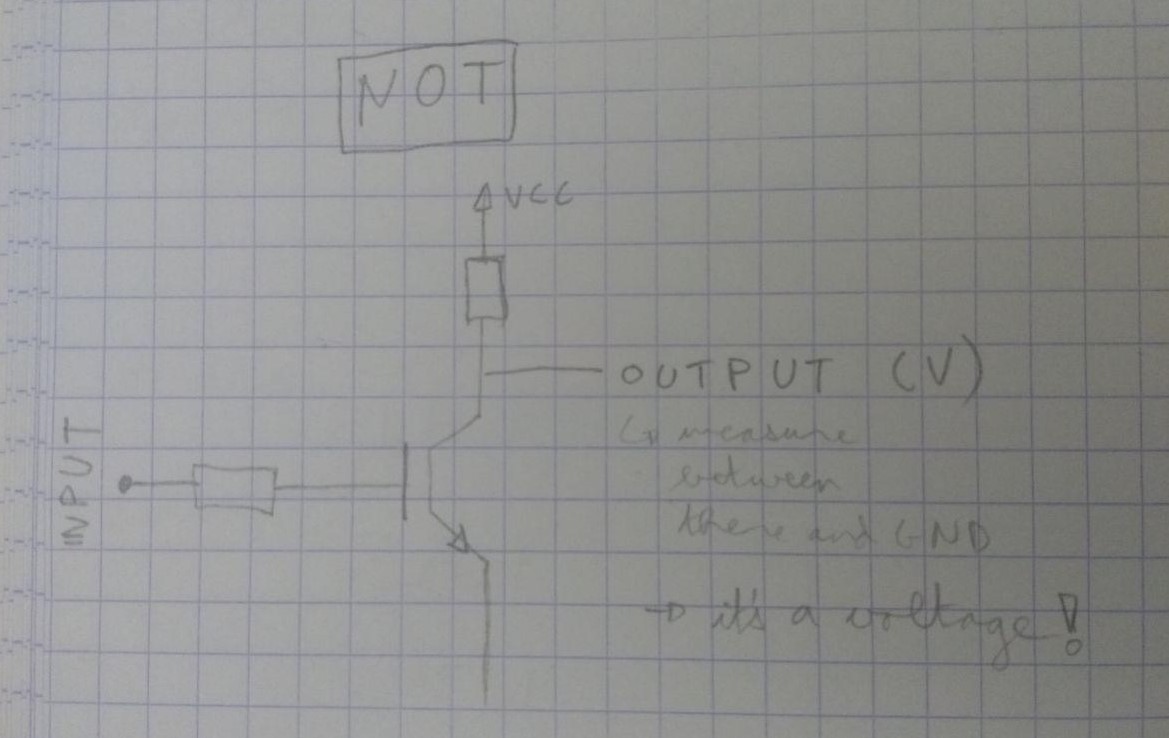 NOT
VCC
OUTPUT (V)
↳ measure
between
there and GND
→ it's a voltage!
INPUT